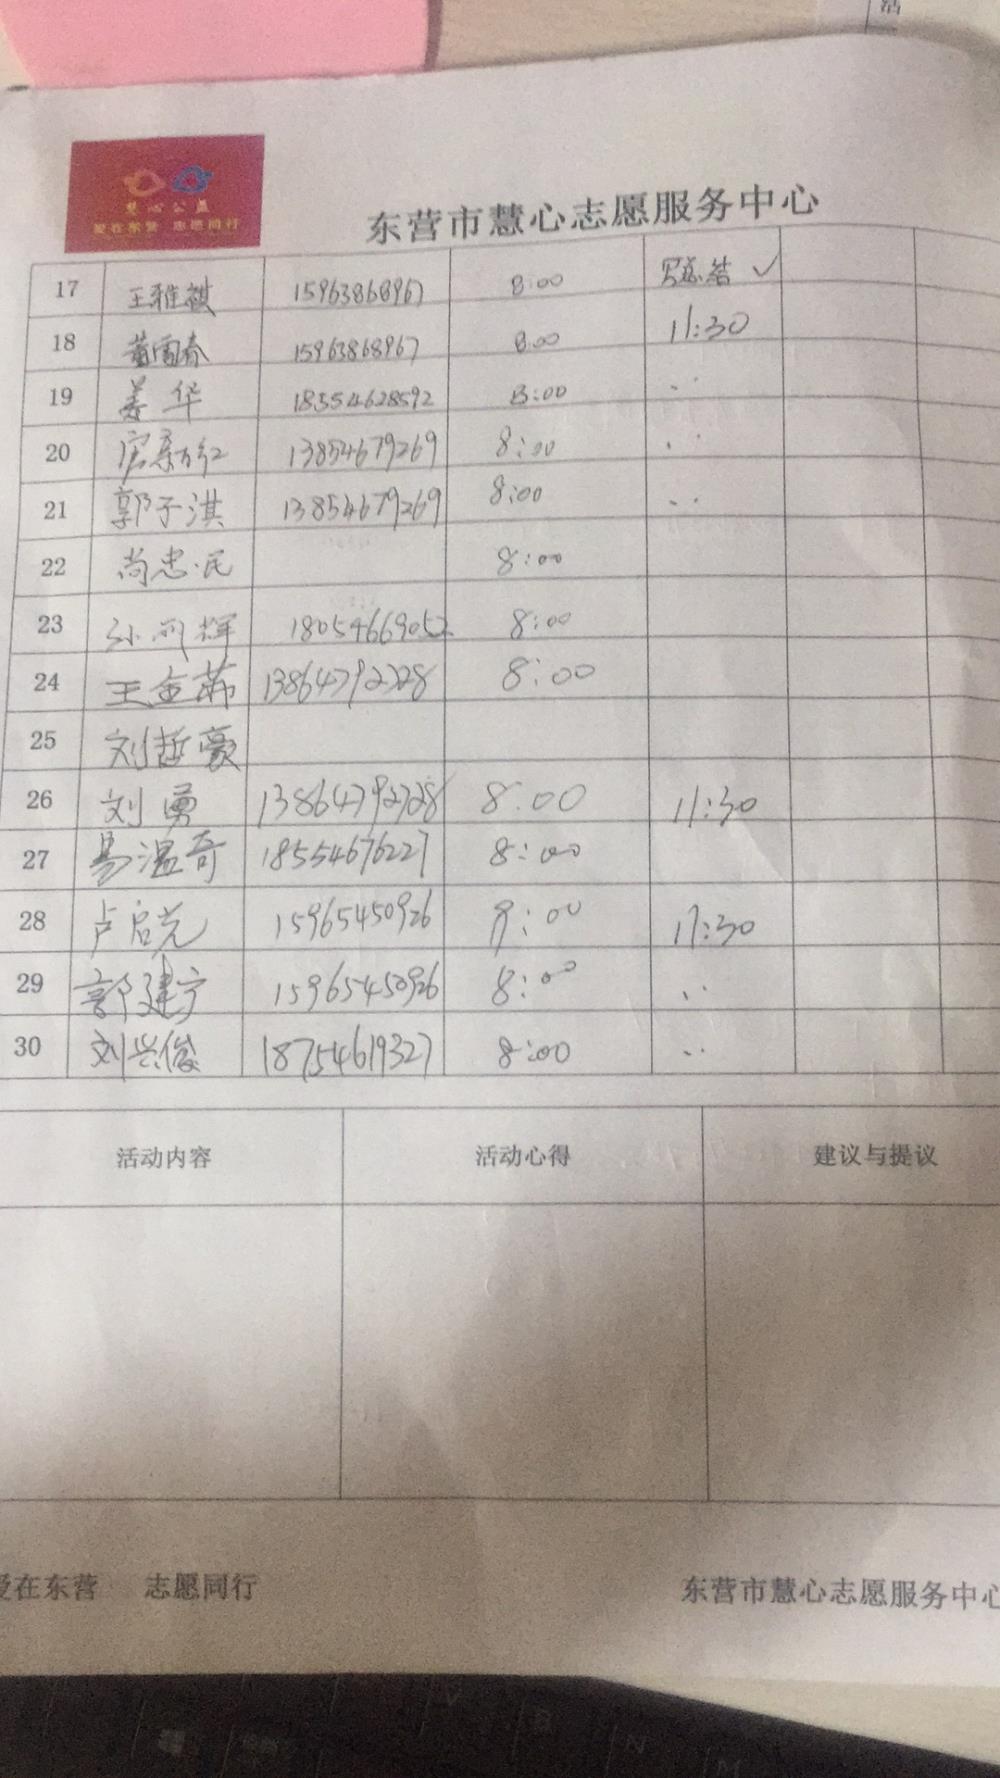 活
慧心公益
爱在东营 志愿同行
东营市慧心志愿服务中心
17 王雅祺 15963868967 8:00 写总结 ✓
18 董国春 15963868967 8:00 11:30
19 姜华 18554628592 8:00 ..
20 13854679269 8:00 ..
21 郭子淇 13854679269 8:00 ..
22 尚忠民 8:00
23 18054669052 8:00
24 王金 13864792728 8:00
25 刘哲豪
26 刘勇 13864792728 8:00 11:30
27 易温奇 18554676227 8:00
28 卢启光 15965450926 8:00 11:30
29 郭建宁 15965450926 8:00 ..
30 刘兴俊 18754619327 8:00 ..
活动内容 活动心得 建议与提议
爱在东营 志愿同行 东营市慧心志愿服务中心
V B N M